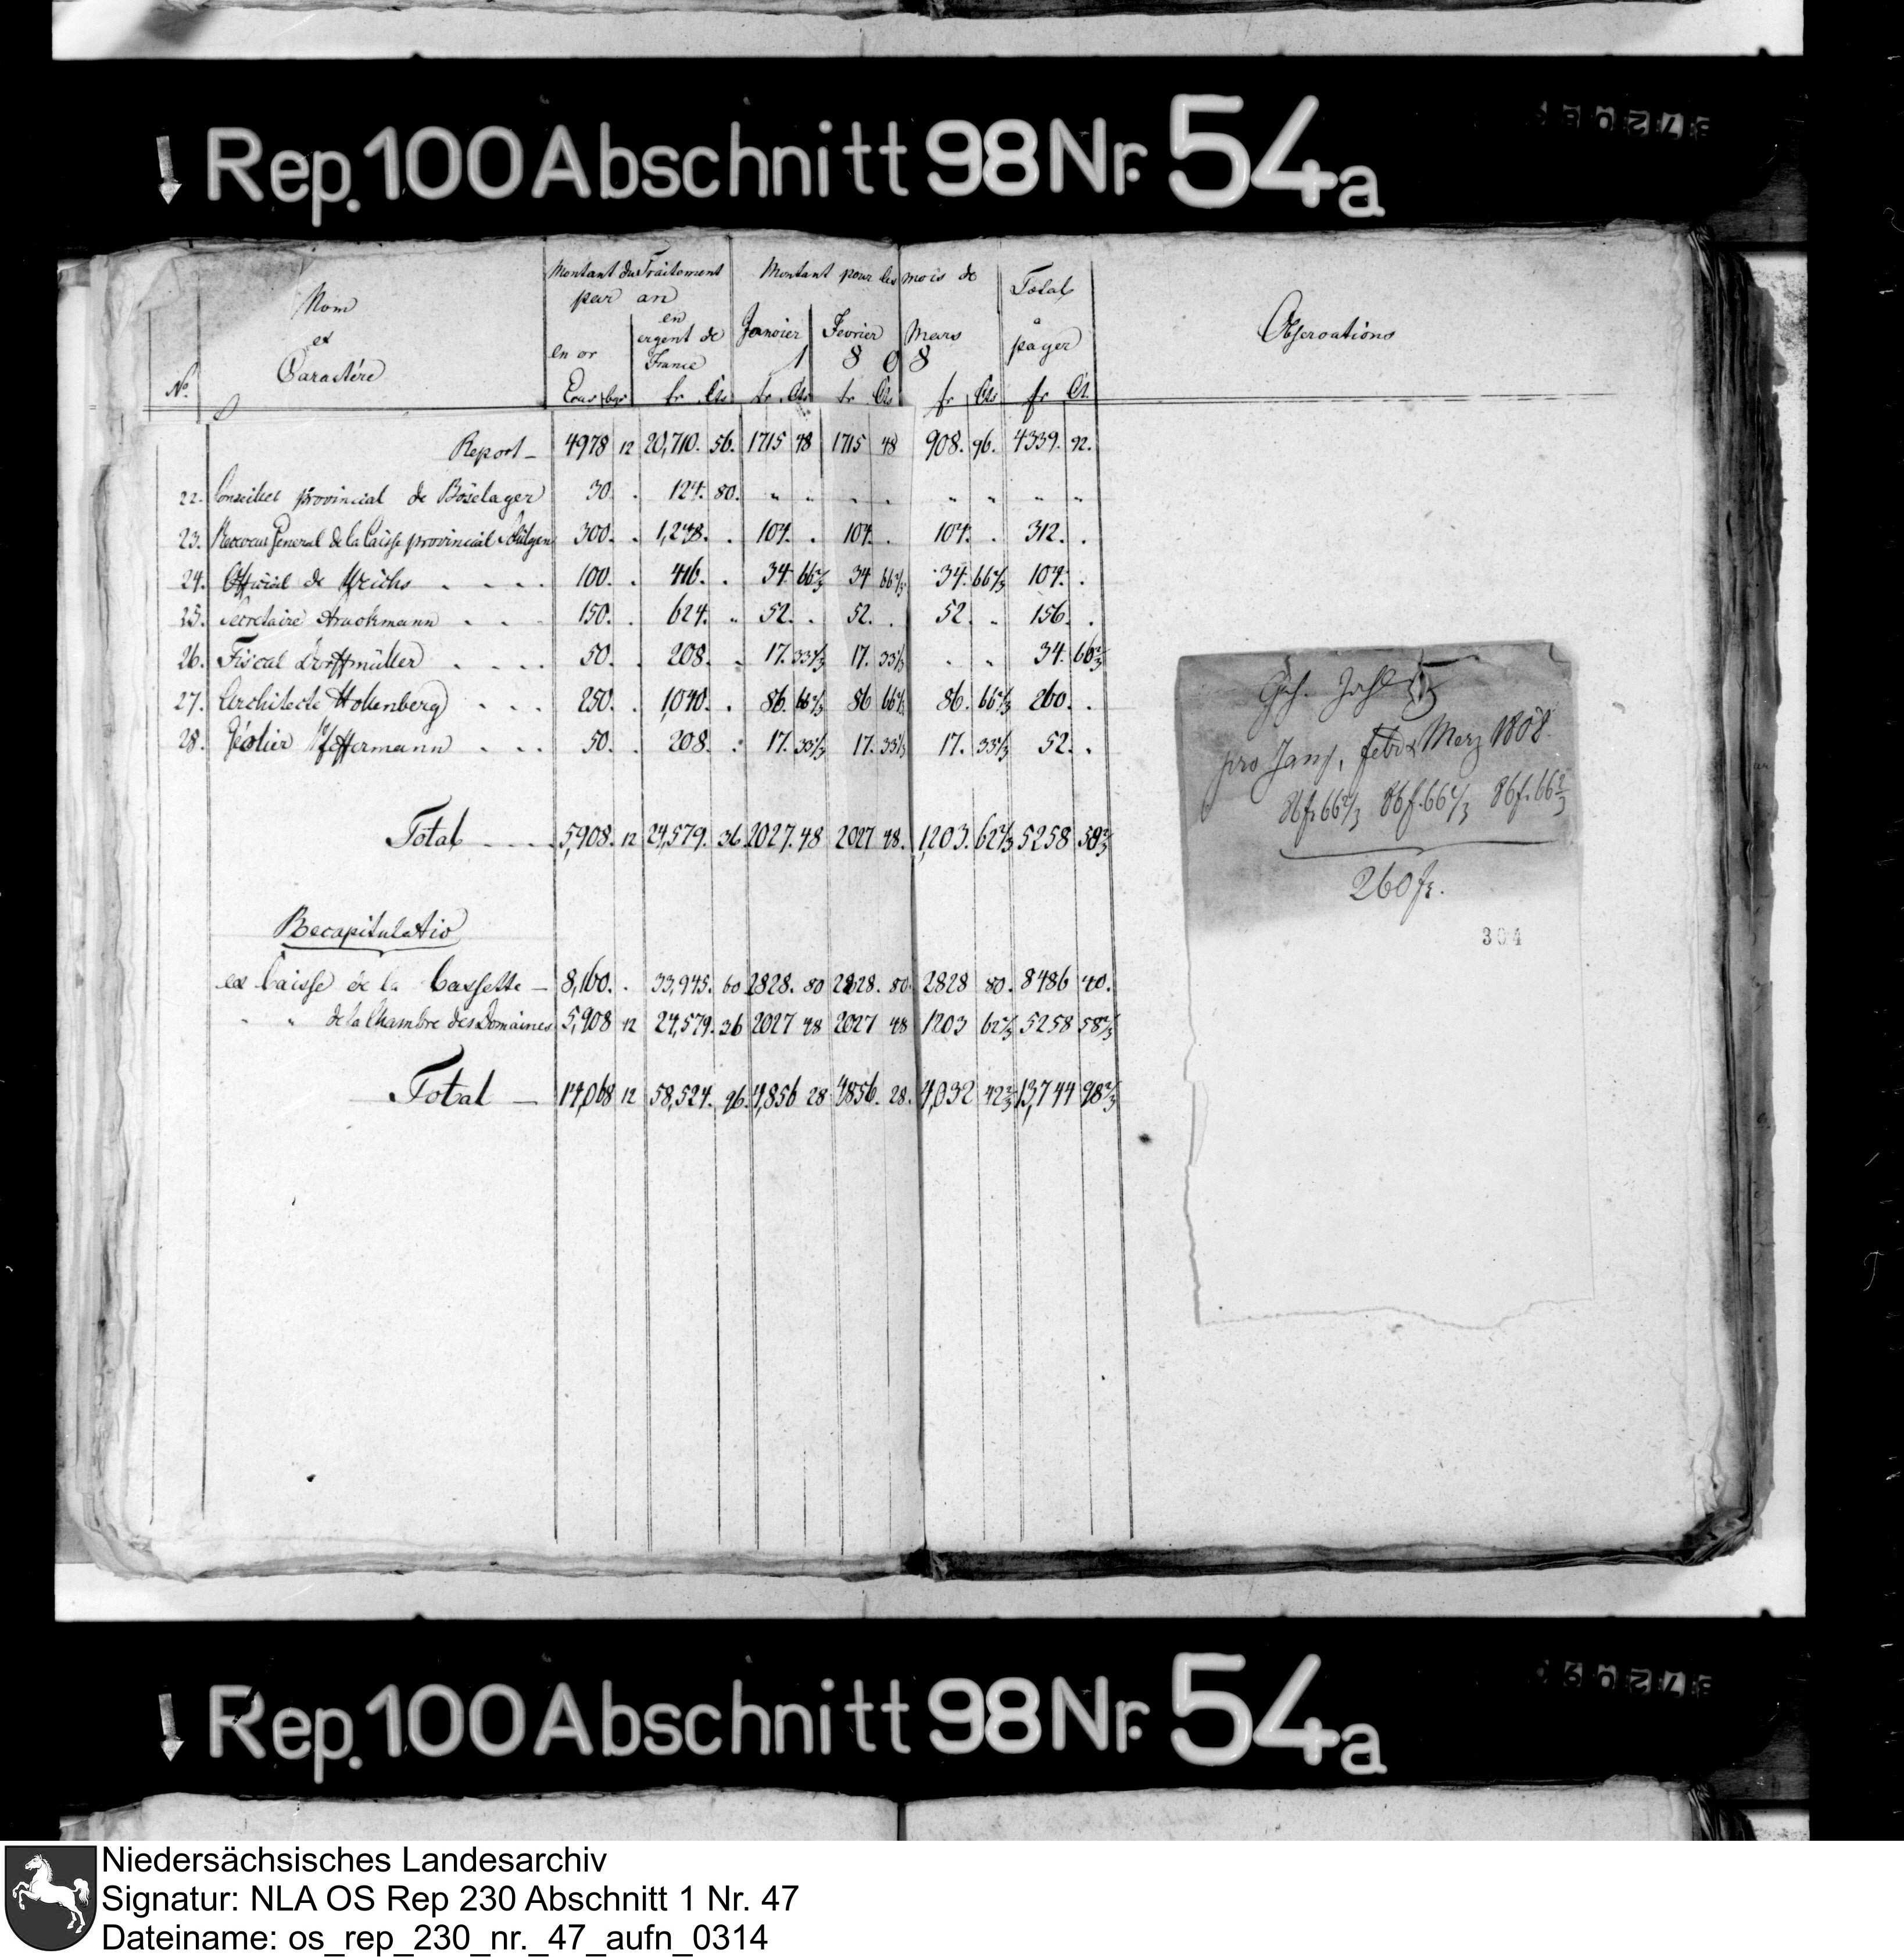 Rep. 100 Abschnitt 98 Nr. 54a
Nom et Caractére
Montant du Traitement par an
Montant pour les mois de
Total à payer
Observations
en or
en argent de France
Janvier Fevrier Mars
1 8 0 8
No. Ecus bgr fr Cts fr Cts fr Cts fr Cts fr Ct.
Report — 4978 12 20,710. 56. 1715 48 1715 48 908. 96. 4339. 92.
22. Conseiller provincial de Böselager 30. . 124. 80. " " " " " " " "
23. Receveur General de la Caisse provincial 300. . 1,248. . 104. . 104. . 104. . 312. .
24. Official de Weichs . . . . 100. . 416. . 34. 66 2/3 34 66 2/3 34. 66 2/3 104. .
25. Secretaire Struckmann . . . 150. . 624. " 52. . 52. . 52. " 156. .
26. Fiscal Dorffmüller . . . . 50. . 208. . 17. 33 1/3 17. 33 1/3 . " 34. 66 2/3
27. Architecte Hollenberg . . . 250. . 1,040. . 86. 66 2/3 86 66 2/3 86. 66 2/3 260. .
28. Géolier . . . 50. . 208. . 17. 33 1/3 17. 33 1/3 17. 33 1/3 52. .
Total . . . . 5,908. 12 24,579. 36 2027. 48 2027 48. 1,203. 62 2/3 5258 58 2/3
Recapitulatio
ex Caisse de la Cassette — 8,160. . 33,945. 60 2828. 80 2828. 80. 2828 80. 8486 40.
" " de la Chambre des Domaines 5,908 12 24,579. 36 2027 48 2027 48 1203 62 2/3 5258 58 2/3
Total — 14,068 12 58,524. 96. 4,856 28 4856. 28. 4,032 42 2/3 13,744 98 2/3
pro Jany, Febr & Merz 1808.
86f. 66 2/3 86f. 66 2/3 86f. 66 2/3
260 fr.
304
Rep. 100 Abschnitt 98 Nr. 54a
Niedersächsisches Landesarchiv
Signatur: NLA OS Rep 230 Abschnitt 1 Nr. 47
Dateiname: os_rep_230_nr._47_aufn_0314